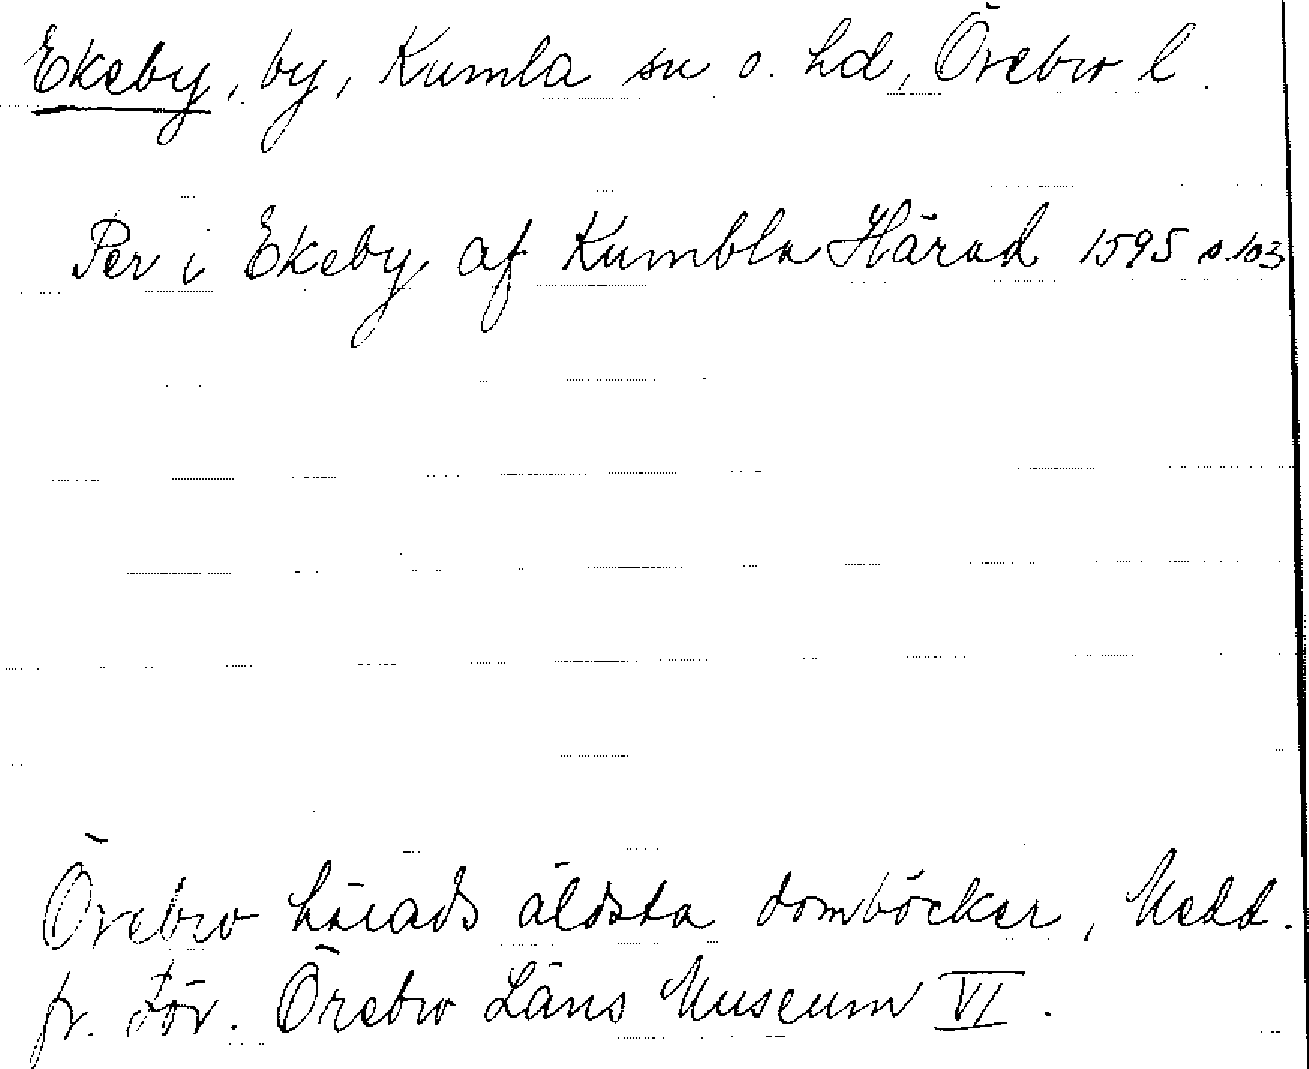 Ekeby, by, Kumla sn o. hd, Örebro l.
Per i Ekeby af Kumbla Härad 1595 s. 103
Örebro härads äldsta domböcker, Medd.
fr. För. Örebro Läns Museum VI.